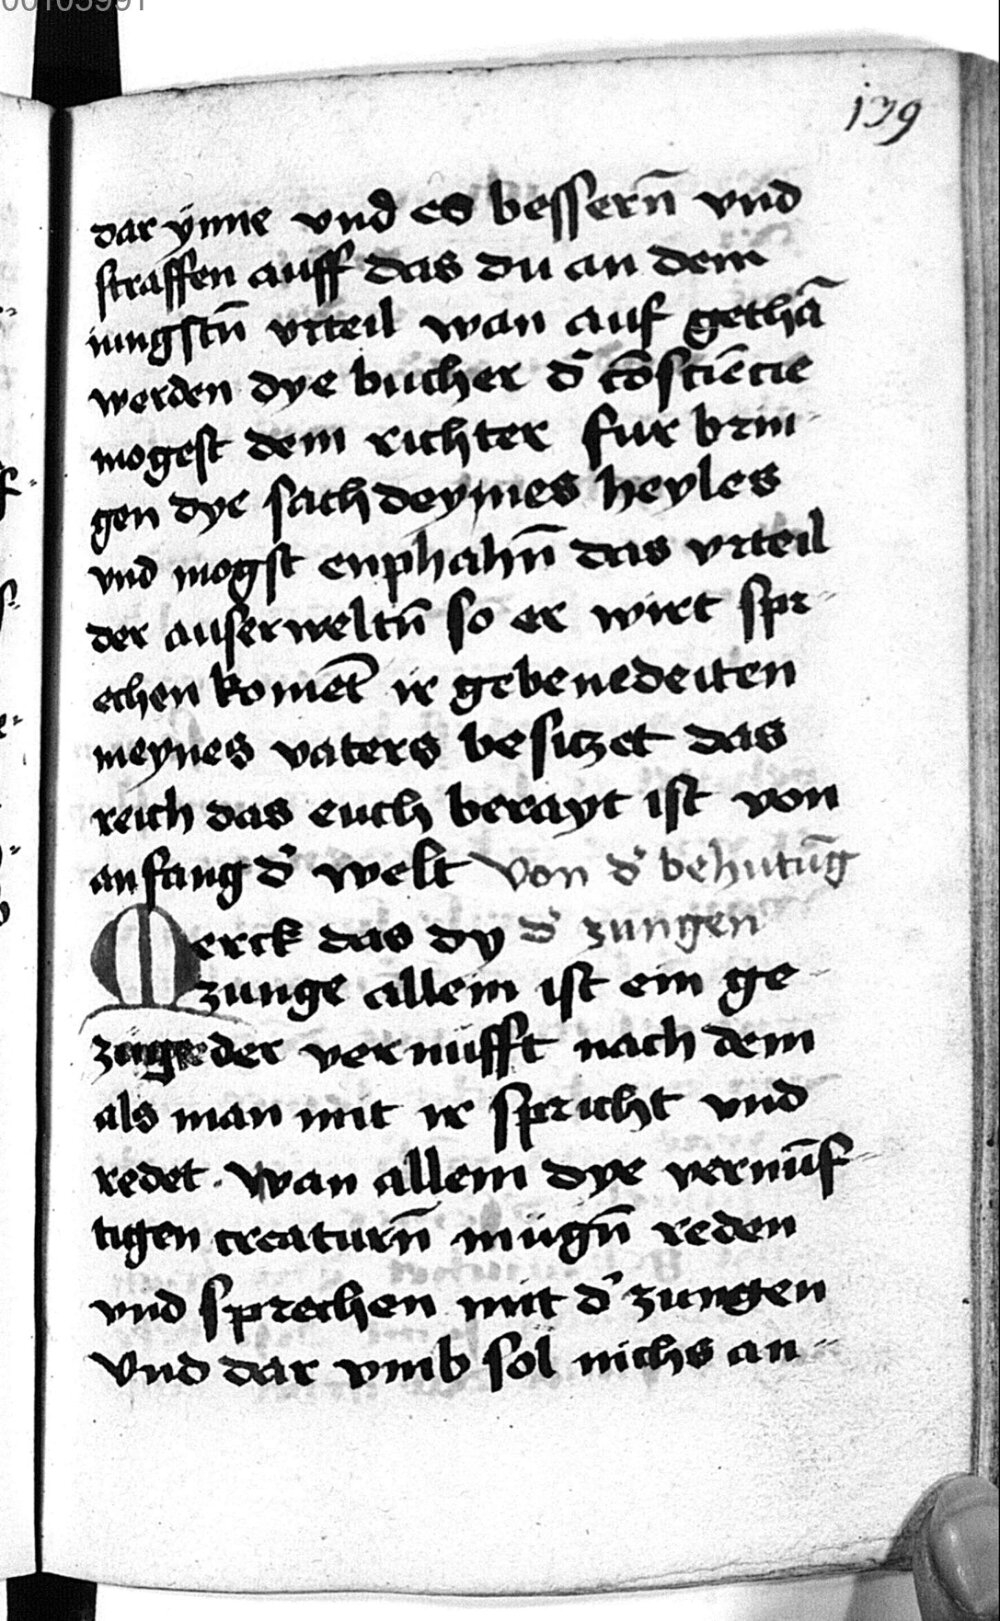 139
dar ynne vnd es bessern̄ vnd
straffen auff das du an dem
iungstn̄ vrteil wan auf gethā
werden dye bucher d' cōsciēcie
mogest dem richter fur brin-
gen dye sach deynnes heyles
vnd mogst enphahn̄ das vrteil
der auserweltn̄ so er wirt spr-
echen komet ir gebenedeiten
meynes vaters besitzet das
reich das euch berayt ist von
anfang d' welt Von d' behutūg
Merck das dy d' zungen
zunge allein ist ein ge-
zuge der vernufft nach dem
als man mit ir spricht vnd
redet. Wan allein dye vernūf-
tigen creaturn̄ mugn̄ reden
vnd sprechen mit d' zungen
Vnd dar vmb sol nichs an-